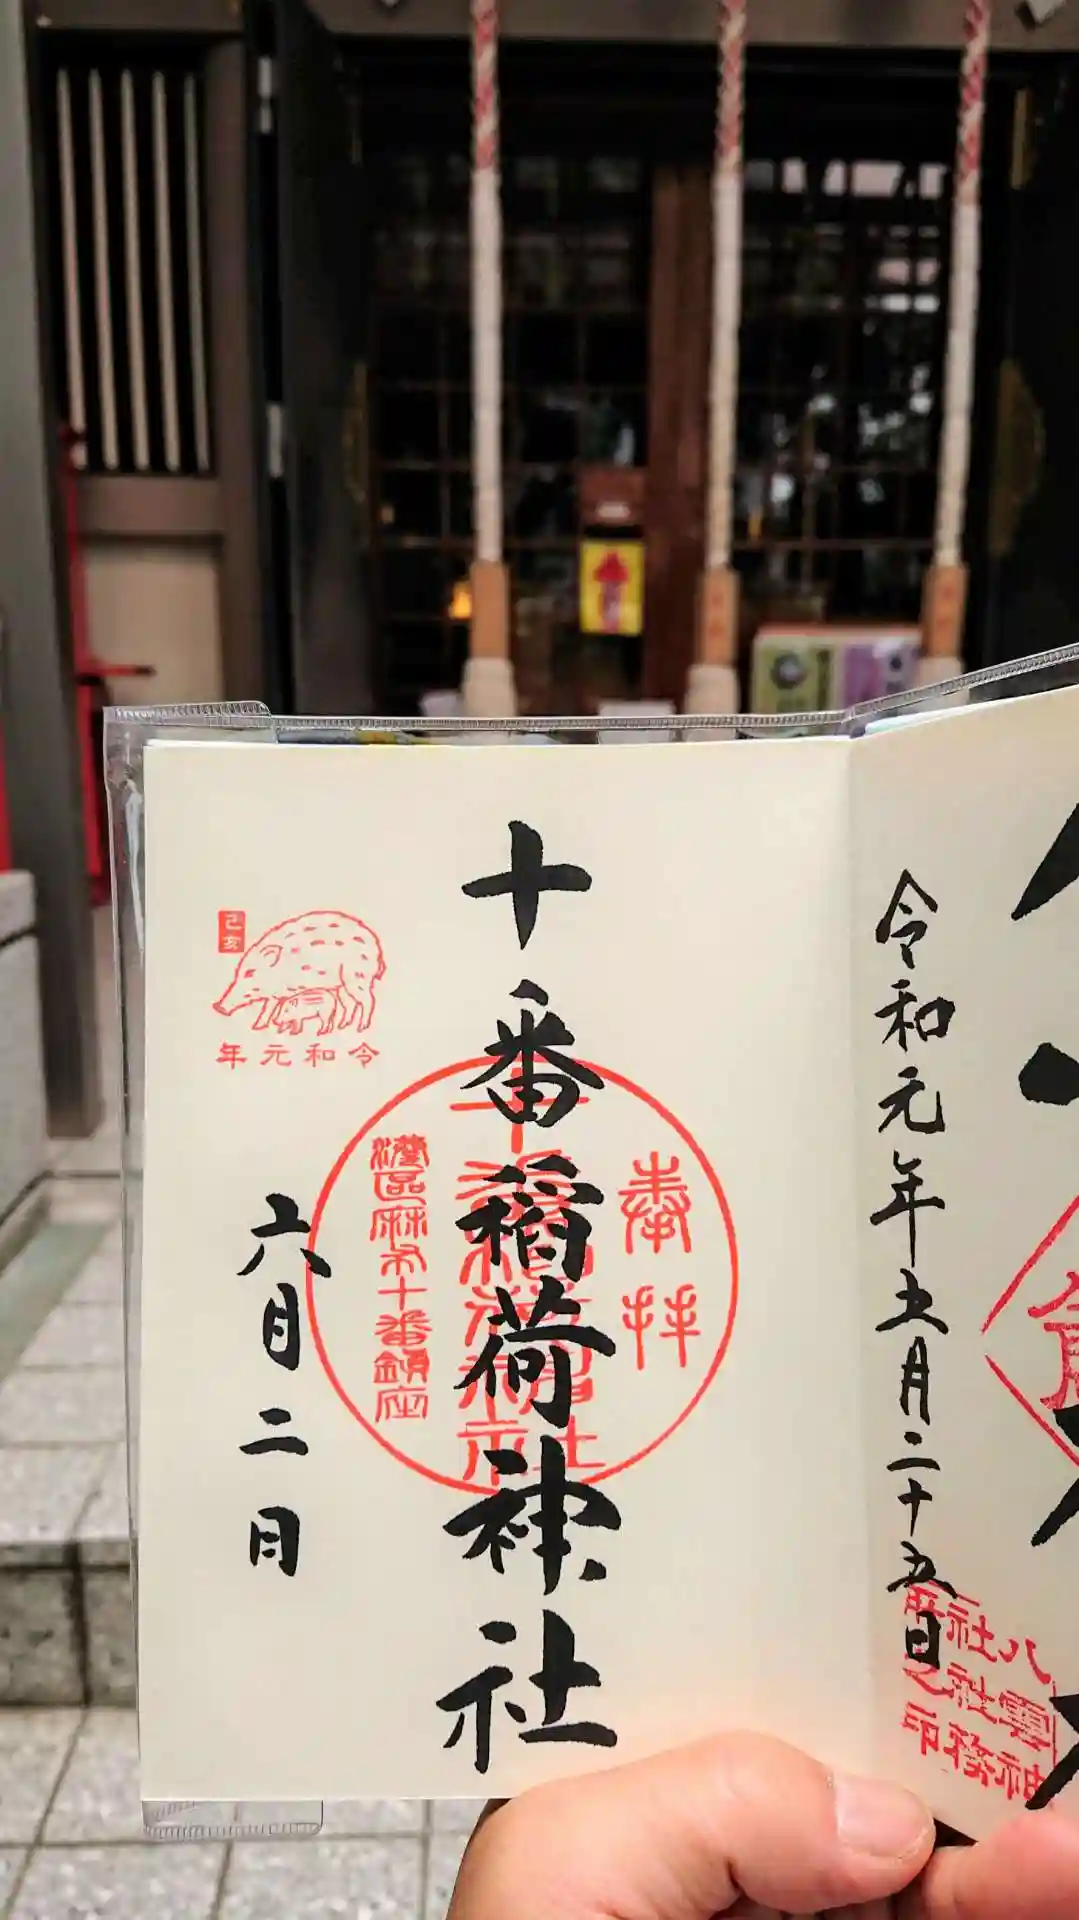 令和元年五月二十五日
八雲神
社社務
之印
十番稲荷神社
奉拝
港區麻布十番鎮座
六月二日
己亥
令和元年